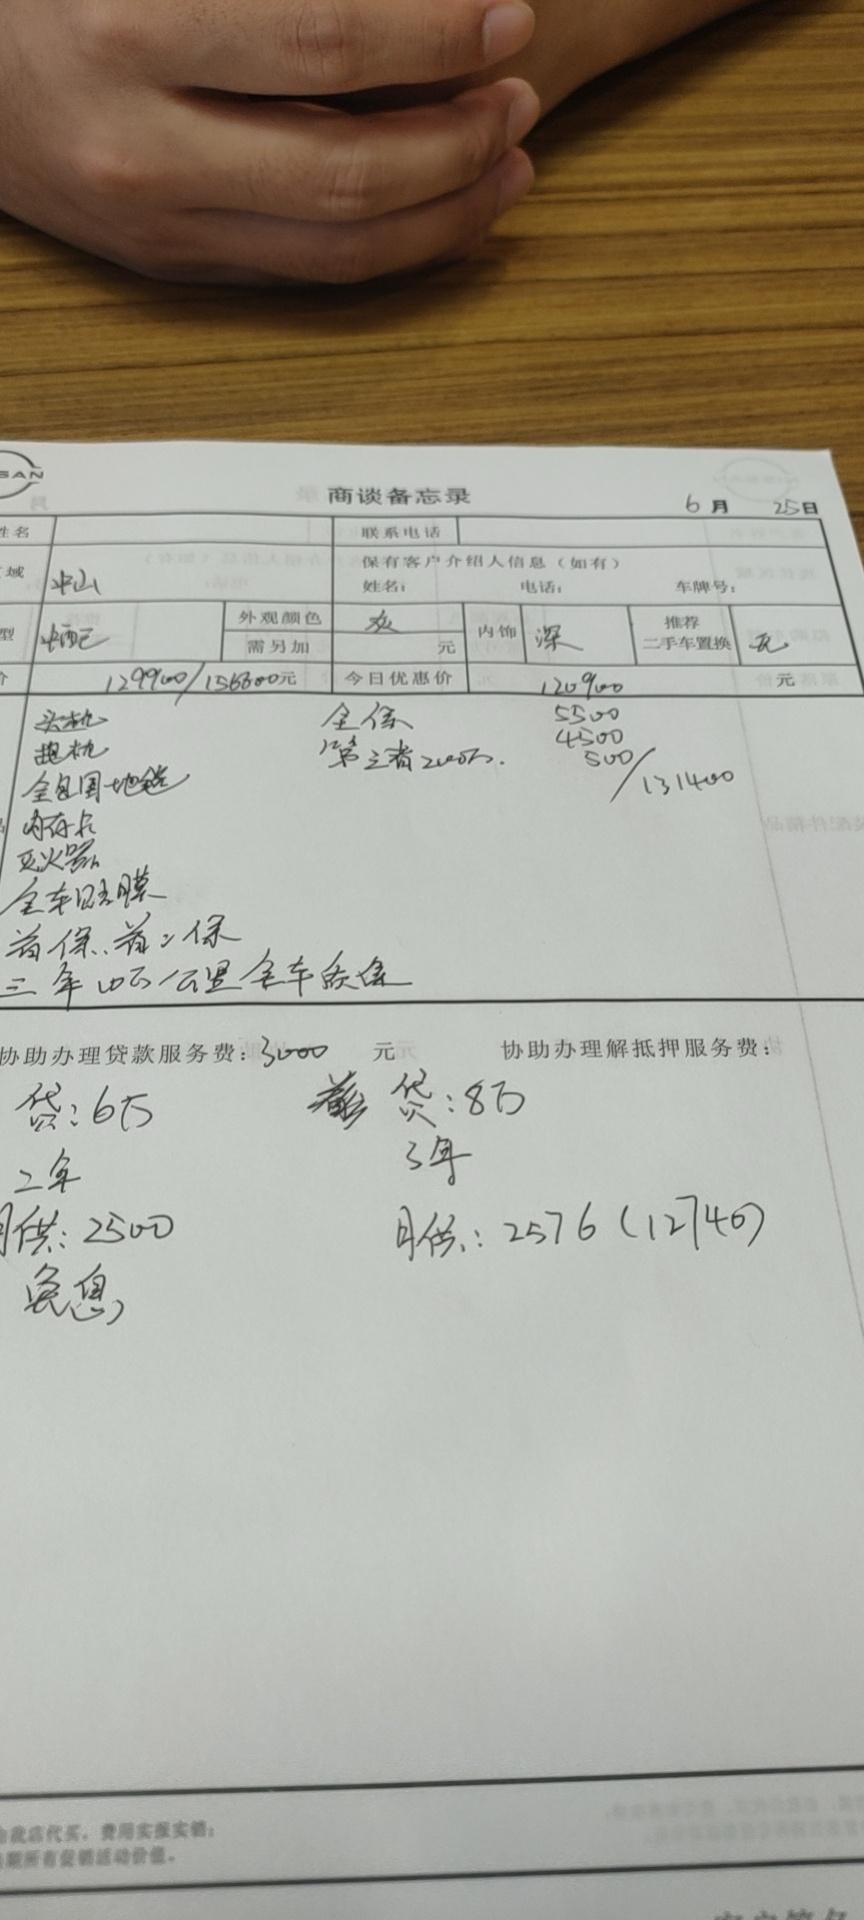 SSAN
商谈备忘录
6月 25日
姓名 联系电话
域 中山 保有客户介绍人信息（如有）
姓名： 电话： 车牌号：
型 中配 外观颜色 内饰 深 推荐 二手车置换 无
需另加 元
价 129900/156800元 今日优惠价 120900 元
头枕 全保 5500
抱枕 第三者200万. 4500
全包围地毯 500/131400
内存卡
灭火器
全车贴膜
首保、首二保
三年 公里全车质保
协助办理贷款服务费：3000 元 协助办理解抵押服务费：
贷：6万 贷：8万
二年 3年
月供：2500 月供：2576（12740）
免息
店代买，费用实报实销；
所有促销活动价值。